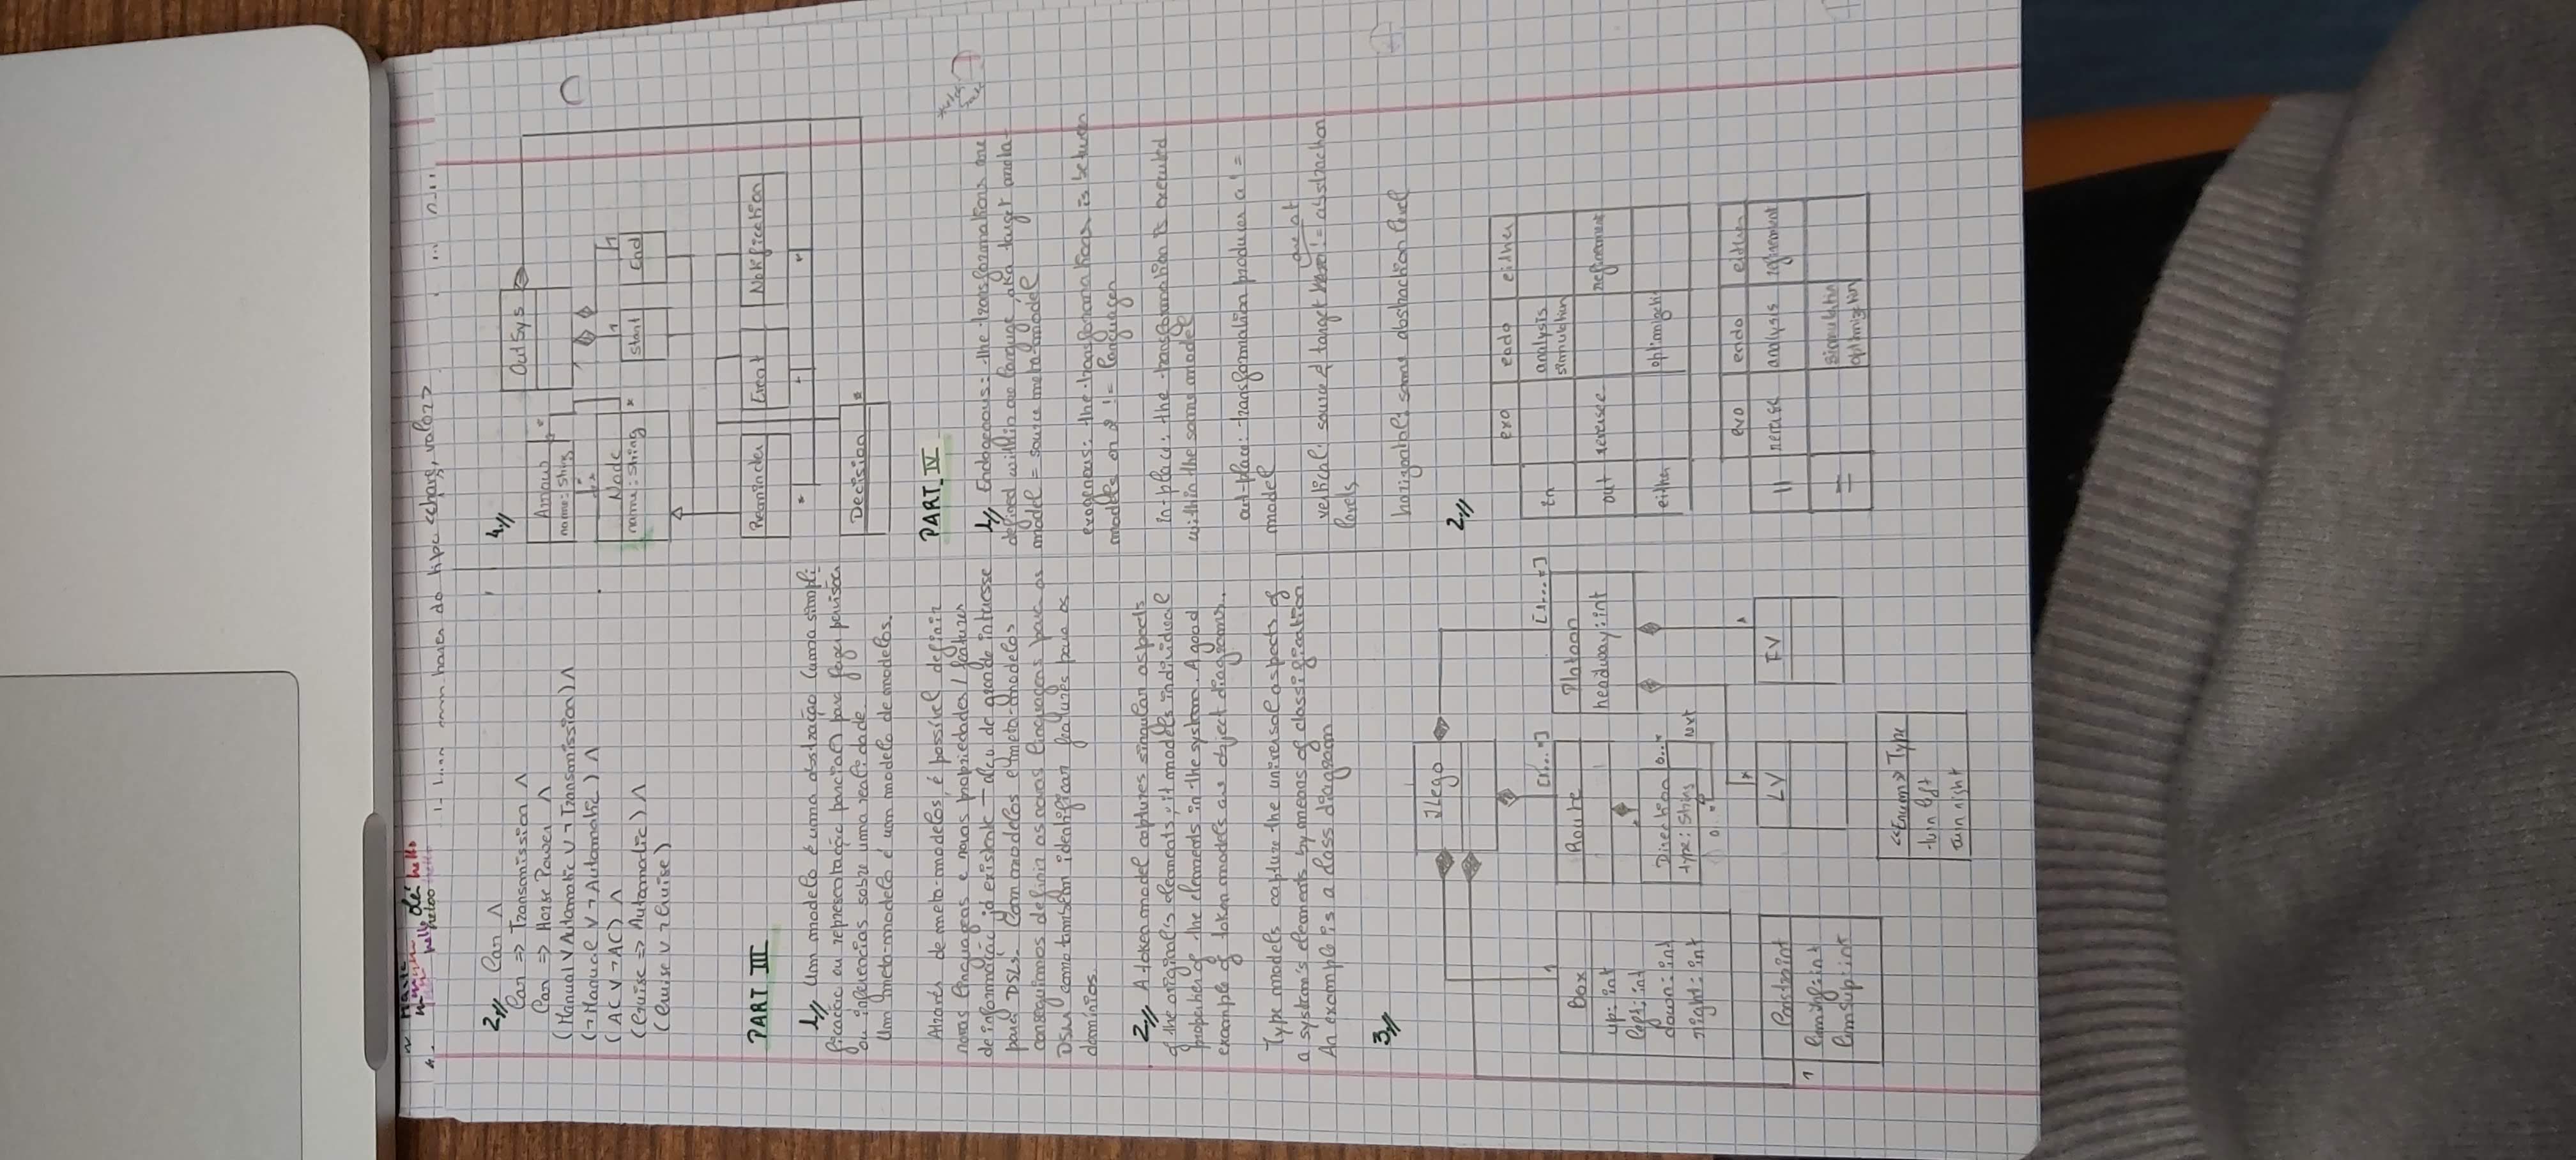 do tipo <chars, valor>
2//
Car ∧
Car => Transmission ∧
Car => Horse Power ∧
(Manual ∨ Automatic ∨ ¬Transmission) ∧
(¬Manual ∨ ¬Automatic) ∧
(AC ∨ ¬AC) ∧
(Cruise => Automatic) ∧
(Cruise ∨ ¬Cruise)
PART III
1// Um modelo é uma abstração (uma simpli-
ficação ou representação parcial) para fazer previsões
ou inferências sobre uma realidade.
Um meta-modelo é um modelo de modelos.
Através de meta-modelos, é possível definir
novas linguagens e novas propriedades/features
de informação já existente — algo de grande interesse
para DSLs. Com modelos e meta-modelos
conseguimos definir as novas linguagens para os
DSM como também identificar features para os
domínios.
2// A token model captures singular aspects
of the original's elements; it models individual
properties of the elements in the system. A good
example of token models are object diagrams.
Type models capture the universal aspects of
a system's elements by means of classification.
An example is a class diagram
3//
Ilego
[1...*]
[1...*]
1
Box
up: int
left: int
down: int
right: int
Route
Direction
type: String
0...*
Next
Platoon
headway: int
1
Constraint
limInf: int
limSup: int
*
LV
FV
<<Enum>> Type
turn left
turn right
4//
OutSys
Arrow
name: String
Node
name: String
*
1
Start
1
End
Reminder
Event
Notification
Decision
*
PART IV
1// Endogeneous: the transformations are
defined within one language, aka target meta-
model = source meta-model
exogenous: the transformations is between
models on 2 != languages
in-place: the transformation is executed
within the same model
out-place: transformation produces a !=
model
vertical: source & target are at != abstraction
levels
horizontal: same abstraction level
2//
exo endo either
in analysis simulation
out reverse refinement
either
exo endo either
|| reverse analysis refinement
= simulation optimization